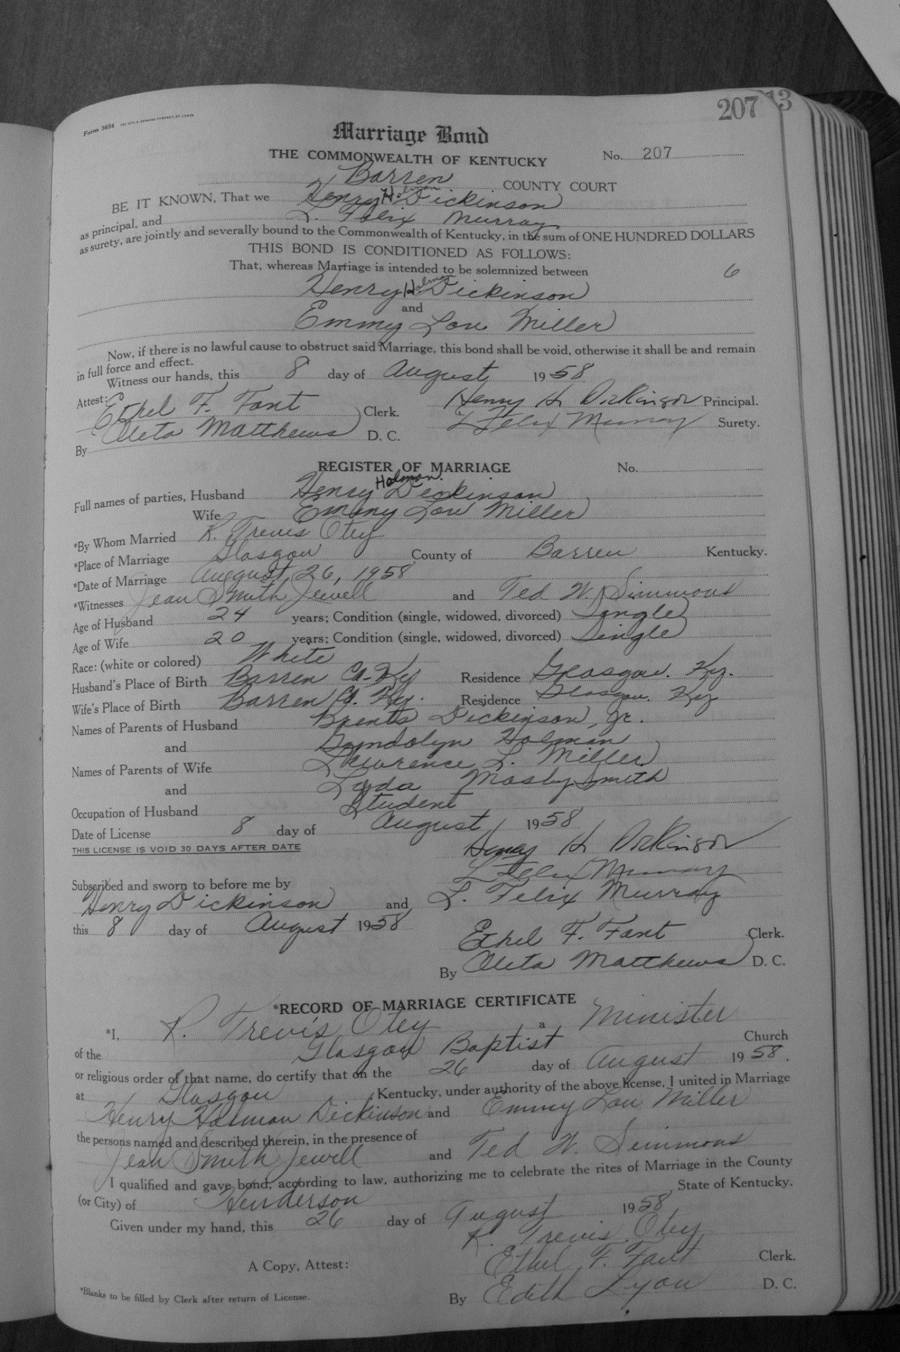 207 13
Form 3634
Marriage Bond
THE COMMONWEALTH OF KENTUCKY No. 207
Barren COUNTY COURT
BE IT KNOWN, That we Henry Holman Dickinson
as principal, and L. Felix Murray
as surety, are jointly and severally bound to the Commonwealth of Kentucky, in the sum of ONE HUNDRED DOLLARS
THIS BOND IS CONDITIONED AS FOLLOWS:
That, whereas Marriage is intended to be solemnized between 6
Henry Holman Dickinson
and
Emmy Lou Miller
Now, if there is no lawful cause to obstruct said Marriage, this bond shall be void, otherwise it shall be and remain
in full force and effect.
Witness our hands, this 8 day of August 1958
Attest: Ethel F. Fant Clerk. Henry H Dickinson Principal.
By Oleta Matthews D. C. L Felix Murray Surety.
REGISTER OF MARRIAGE No.
Full names of parties, Husband Henry Holman Dickinson
Wife Emmy Lou Miller
*By Whom Married R. Trevis Otey
*Place of Marriage Glasgow County of Barren Kentucky.
*Date of Marriage August 26, 1958
*Witnesses Jean Smith Jewell and Ted W. Simmons
Age of Husband 24 years; Condition (single, widowed, divorced) Single
Age of Wife 20 years; Condition (single, widowed, divorced) Single
Race: (white or colored) White
Husband's Place of Birth Barren Co. Ky Residence Glasgow. Ky.
Wife's Place of Birth Barren Co. Ky. Residence Glasgow. Ky
Names of Parents of Husband Brents Dickinson, Jr.
and Gwndolyn Holman
Names of Parents of Wife Lawrence L. Miller
and Lyda Mosby Smith
Occupation of Husband Student
Date of License 8 day of August 1958
THIS LICENSE IS VOID 30 DAYS AFTER DATE Henry H Dickinson
L Felix Murray
Subscribed and sworn to before me by
Henry Dickinson and L. Felix Murray
this 8 day of August 1958
Ethel F. Fant Clerk.
By Oleta Matthews D. C.
*RECORD OF MARRIAGE CERTIFICATE
*I, R. Trevis Otey a Minister
of the Glasgow Baptist Church
or religious order of that name, do certify that on the 26 day of August 1958.
at Glasgow, Kentucky, under authority of the above license, I united in Marriage
Henry Holman Dickinson and Emmy Lou Miller
the persons named and described therein, in the presence of
Jean Smith Jewell and Ted W. Simmons
I qualified and gave bond, according to law, authorizing me to celebrate the rites of Marriage in the County
(or City) of Henderson State of Kentucky.
Given under my hand, this 26 day of August 1958
R. Trevis Otey
A Copy, Attest: Ethel F. Fant Clerk.
*Blanks to be filled by Clerk after return of License. By Edith Lyon D. C.